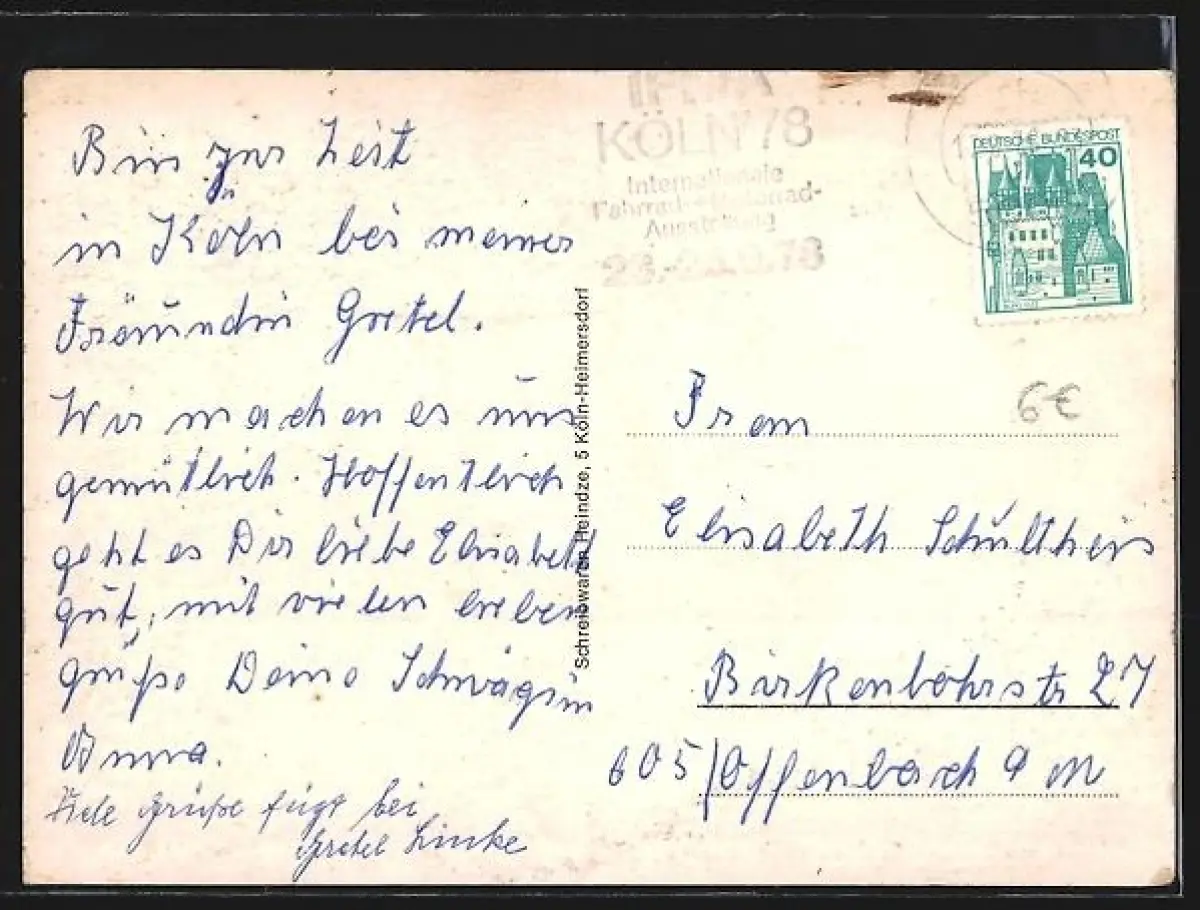 Bin zur Zeit
in Köln bei meiner
Freundin Gretel.
Wir machen es uns
gemütlich. Hoffentlich
geht es Dir liebe Elisabeth
gut, mit vielen lieben
grüße Deine Schwägrin
Anna.
Viele Grüße fügt bei
Gretel Linke
Schreibwaren Heindze, 5 Köln-Heimersdorf
KÖLN '78
Internationale
Fahrrad- Motorrad-
Ausstellung
DEUTSCHE BUNDESPOST
40
6€
Frau
Elisabeth Schultheis
27
605/Offenbach a M